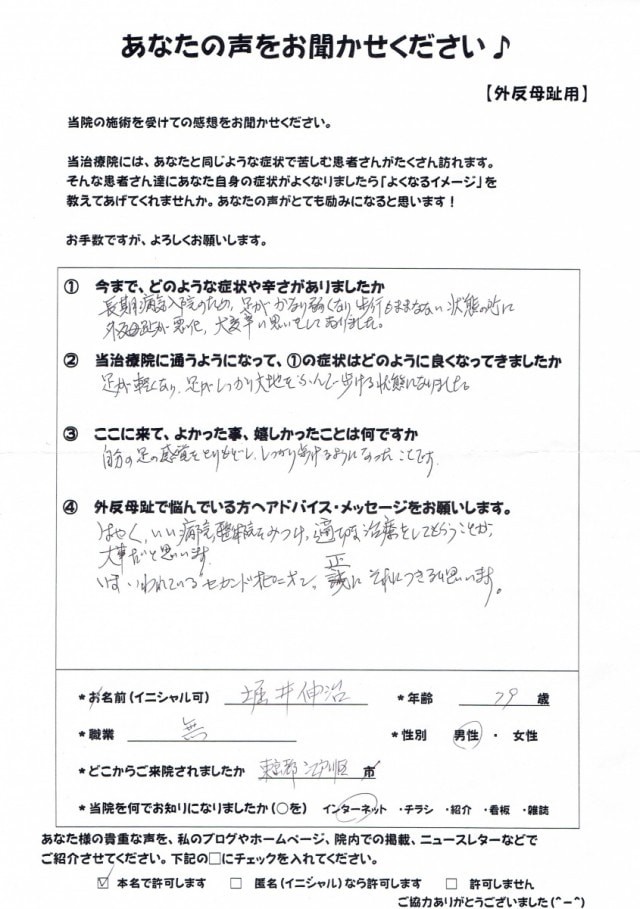 あなたの声をお聞かせください♪
【外反母趾用】
当院の施術を受けての感想をお聞かせください。
当治療院には、あなたと同じような症状で苦しむ患者さんがたくさん訪れます。
そんな患者さん達にあなた自身の症状がよくなりましたら「よくなるイメージ」を
教えてあげてくれませんか。あなたの声がとても励みになると思います！
お手数ですが、よろしくお願いします。
① 今まで、どのような症状や辛さがありましたか
長期病気入院のため、足がかなり弱くなり歩行もままならない状態の時に
外反母趾が悪化、大変辛い思いをしておりました。
② 当治療院に通うようになって、①の症状はどのように良くなってきましたか
足が軽くなり、足がしっかり大地をふんで歩ける状態になりました。
③ ここに来て、よかった事、嬉しかったことは何ですか
自分の足の感覚をとりもどし、しっかり歩けるようになったことです。
④ 外反母趾で悩んでいる方へアドバイス・メッセージをお願いします。
はやく、いい病院、整体院をみつけ、適切な治療をしてもらうことが、
大事だと思います。
いま、いわれているセカンドオピニオン、正に それにつきると思います。
*お名前（イニシャル可） 堀井伸治 *年齢 79 歳
*職業 無 *性別 男性 ・ 女性
*どこからご来院されましたか 東京都江戸川区 市
*当院を何でお知りになりましたか（○を） インターネット ・チラシ ・紹介 ・看板 ・雑誌
あなた様の貴重な声を、私のブログやホームページ、院内での掲載、ニュースレターなどで
ご紹介させてください。下記の□にチェックを入れてください。
☑ 本名で許可します □ 匿名（イニシャル）なら許可します □ 許可しません
ご協力ありがとうございました(^-^)